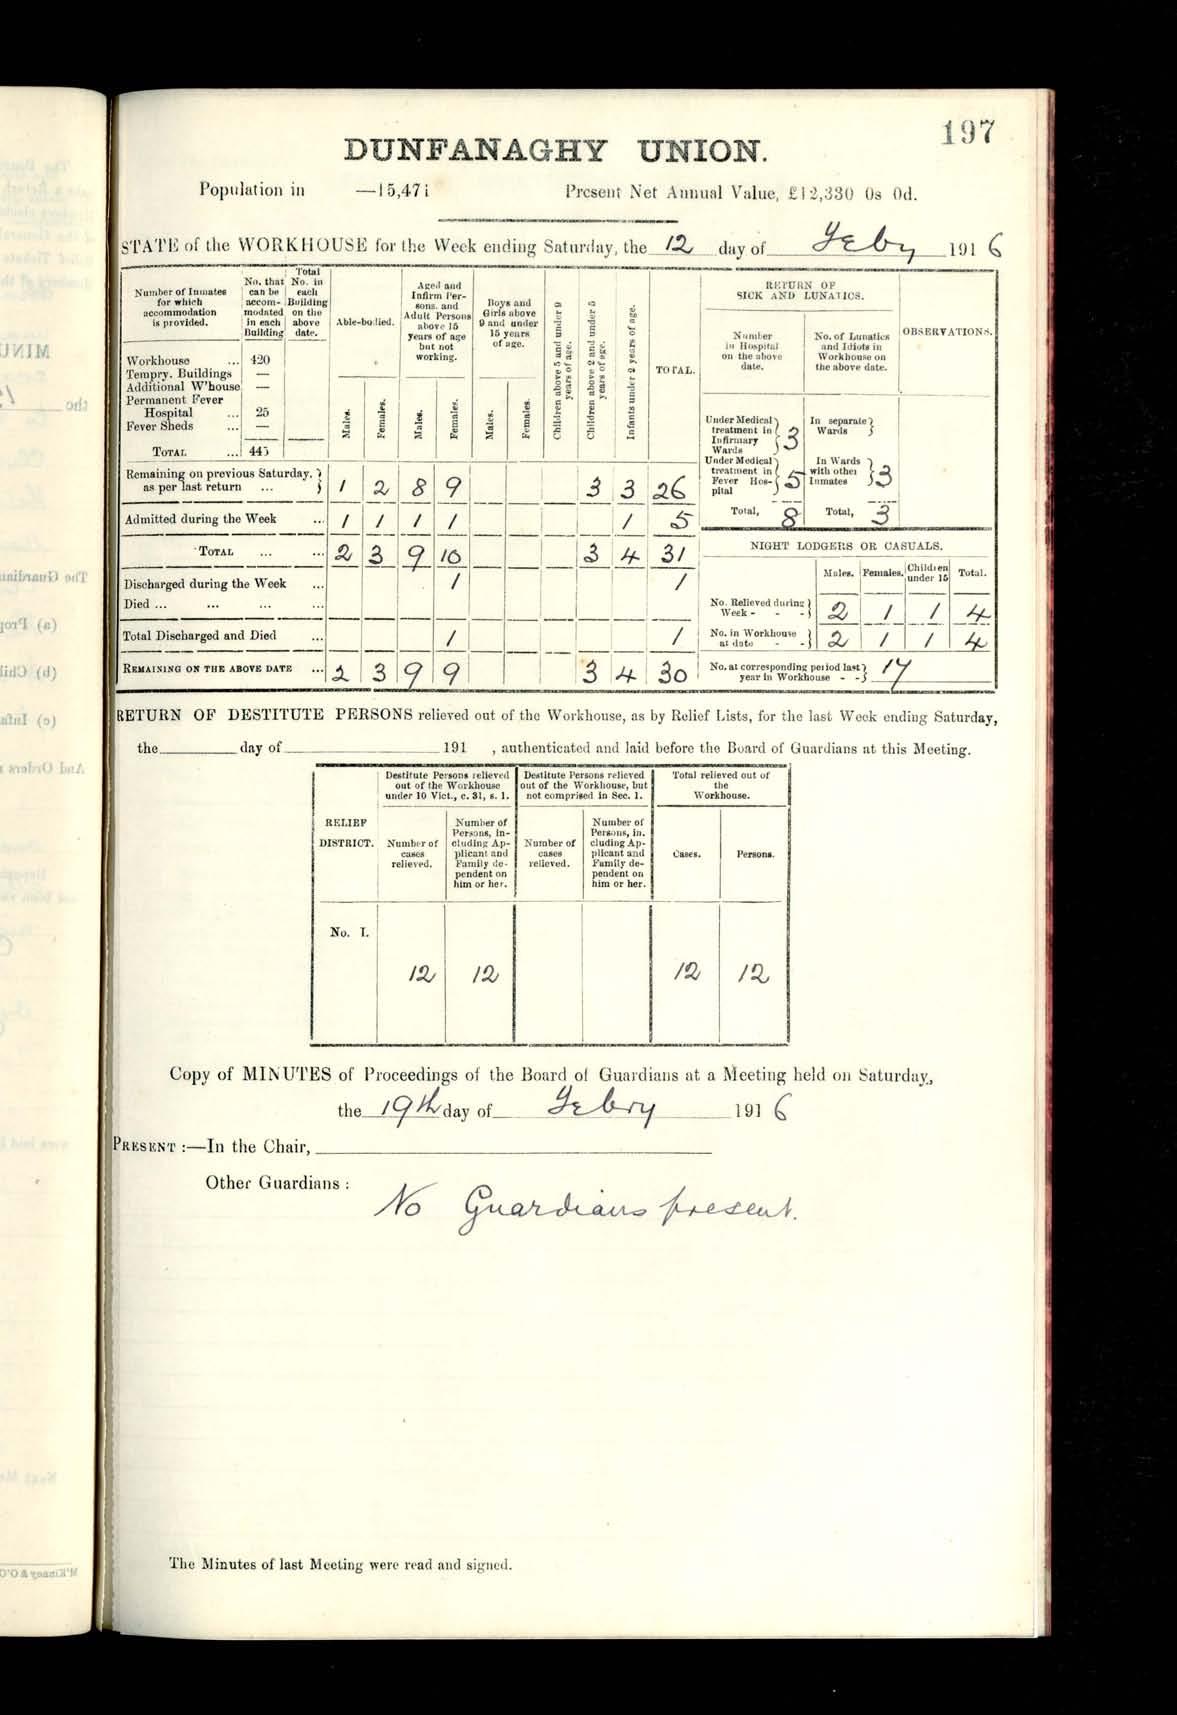 197
DUNFANAGHY UNION.
Population in —15,471 Present Net Annual Value, £12,330 0s 0d.
STATE of the WORKHOUSE for the Week ending Saturday, the 12 day of Feby 1916
Number of Inmates for which accommodation is provided.
No. that can be accom- modated in each Building
Total No. in each Building on the above date.
Able-bodied.
Aged and Infirm Per- sons, and Adult Persons above 15 years of age but not working.
Boys and Girls above 9 and under 15 years of age.
Children above 5 and under 9 years of age.
Children above 2 and under 5 years of age.
Infants under 2 years of age.
TOTAL.
RETURN OF SICK AND LUNATICS.
Number in Hospital on the above date.
No. of Lunatics and Idiots in Workhouse on the above date.
OBSERVATIONS.
Males. Females. Males. Females. Males. Females.
Workhouse ... 420
Tempry. Buildings —
Additional W'house —
Permanent Fever Hospital ... 25
Fever Sheds ... —
TOTAL ... 445
Under Medical treatment in Infirmary Wards } 3
In separate Wards }
Under Medical treatment in Fever Hos- pital } 5
In Wards with other Inmates } 3
Total, 8 Total, 3
Remaining on previous Saturday, as per last return ... } 1 2 8 9 3 3 26
Admitted during the Week ... 1 1 1 1 1 5
TOTAL ... ... 2 3 9 10 3 4 31
Discharged during the Week ... 1 1
Died ... ... ... ...
Total Discharged and Died ... 1 1
REMAINING ON THE ABOVE DATE ... 2 3 9 9 3 4 30
NIGHT LODGERS OR CASUALS.
Males. Females. Children under 15 Total.
No. Relieved during Week - - - } 2 1 1 4
No. in Workhouse at date - - } 2 1 1 4
No. at corresponding period last year in Workhouse - - } 17
RETURN OF DESTITUTE PERSONS relieved out of the Workhouse, as by Relief Lists, for the last Week ending Saturday,
the day of 191 , authenticated and laid before the Board of Guardians at this Meeting.
RELIEF DISTRICT.
Destitute Persons relieved out of the Workhouse under 10 Vict., c. 31, s. 1.
Destitute Persons relieved out of the Workhouse, but not comprised in Sec. 1.
Total relieved out of the Workhouse.
Number of cases relieved.
Number of Persons, in- cluding Ap- plicant and Family de- pendent on him or her.
Number of cases relieved.
Number of Persons, in. cluding Ap- plicant and Family de- pendent on him or her.
Cases. Persons.
No. I.
12 12 12 12
Copy of MINUTES of Proceedings of the Board of Guardians at a Meeting held on Saturday,
the 19th day of Febry 1916
PRESENT :—In the Chair,
Other Guardians :
No Guardians present.
The Minutes of last Meeting were read and signed.